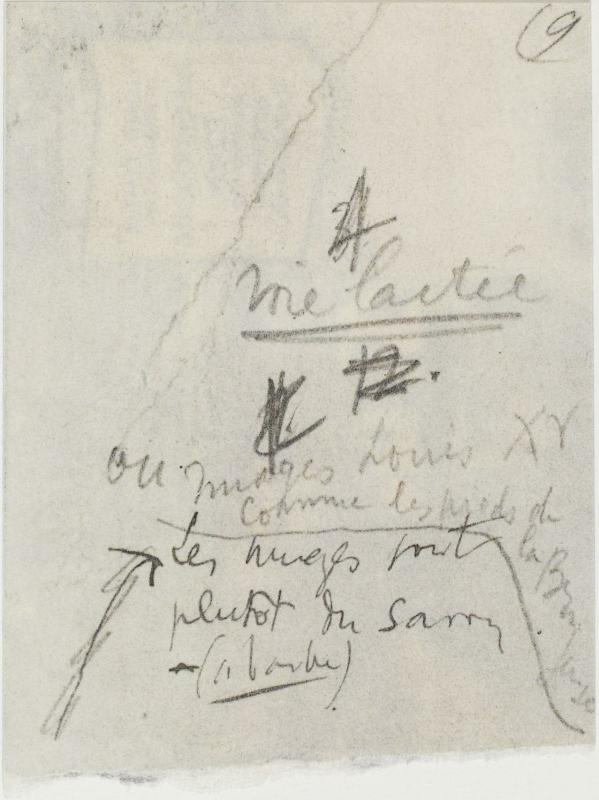 9
Voie lactée
12.
ou nuages Louis XV
comme les pieds de
la
Les nuages sont
plutôt du savon
(à barbe)